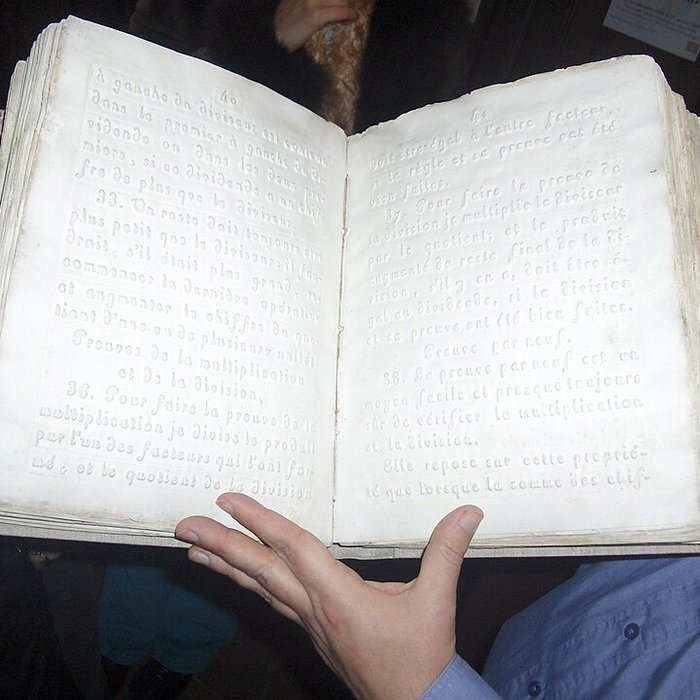 40
à gauche du diviseur est contenu
dans le premier à gauche du di-
vidende ou dans les deux pre-
miers, si ce dividende a un chif-
fre de plus que le diviseur.
33. Un reste doit toujours être
plus petit que le diviseur; il fau-
drait, s'il était plus grand, re-
commencer la dernière opération
et augmenter le chiffre du quo-
tient d'une ou de plusieurs unités.
Preuves de la multiplication
et de la division.
36. Pour faire la preuve de la
multiplication je divise le produit
par l'un des facteurs qui l'ont for-
mé; et le quotient de la division
doit être égal à l'autre facteur,
si la règle et sa preuve ont été
bien faites.
37. Pour faire la preuve de
la division je multiplie le diviseur
par le quotient; et le produit
augmenté du reste final de la di-
vision, s'il y en a, doit être é-
gal au dividende, si la division
et sa preuve ont été bien faites.
Preuve par neuf.
38. La preuve par neuf est un
moyen facile et presque toujours
sûr de vérifier la multiplication
et la division.
Elle repose sur cette proprié-
té que lorsque la somme des chif-